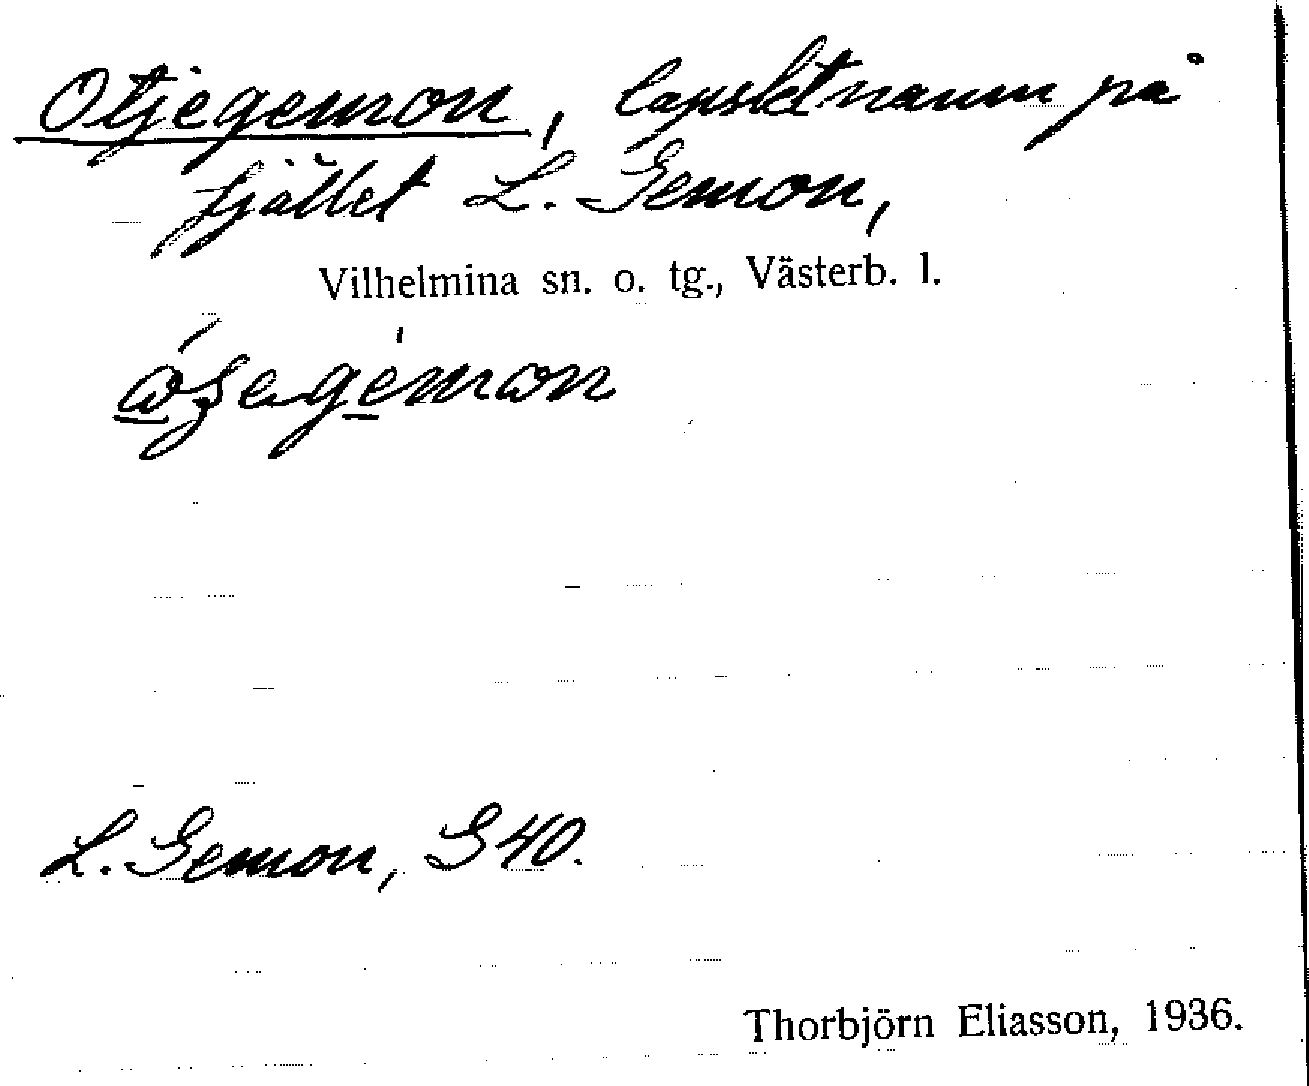 Otjegemon, lapskt namn på
fjället L. Gemon,
Vilhelmina sn. o. tg., Västerb. l.
L. Gemon, S 40.
Thorbjörn Eliasson, 1936.